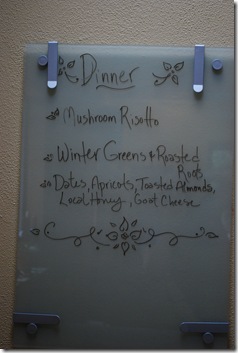 Dinner
Mushroom Risotto
Winter Greens & Roasted
Roots
Dates, Apricots, Toasted Almonds,
Local Honey, Goat Cheese